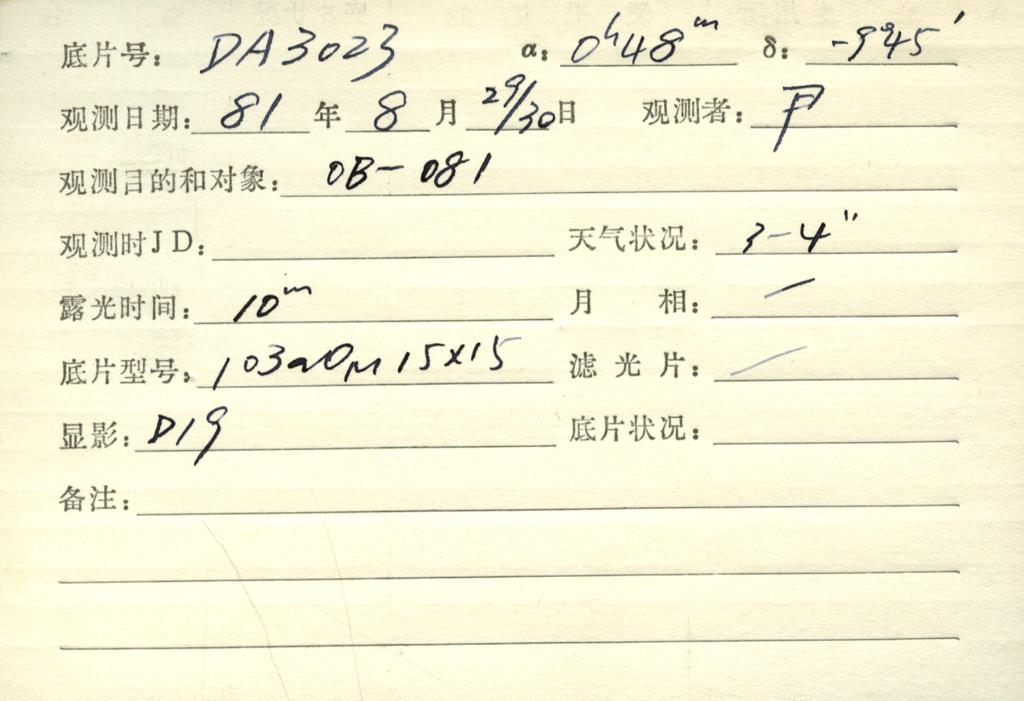 底片号: DA3023 α: 0ʰ48ᵐ δ: -9°45′
观测日期: 81 年 8 月 29/30日 观测者: 尹
观测目的和对象: OB-081
观测时JD: 天气状况: 3-4″
露光时间: 10ᵐ 月 相: —
底片型号: 103aO 15×15 滤 光 片: —
显影: D19 底片状况:
备注: